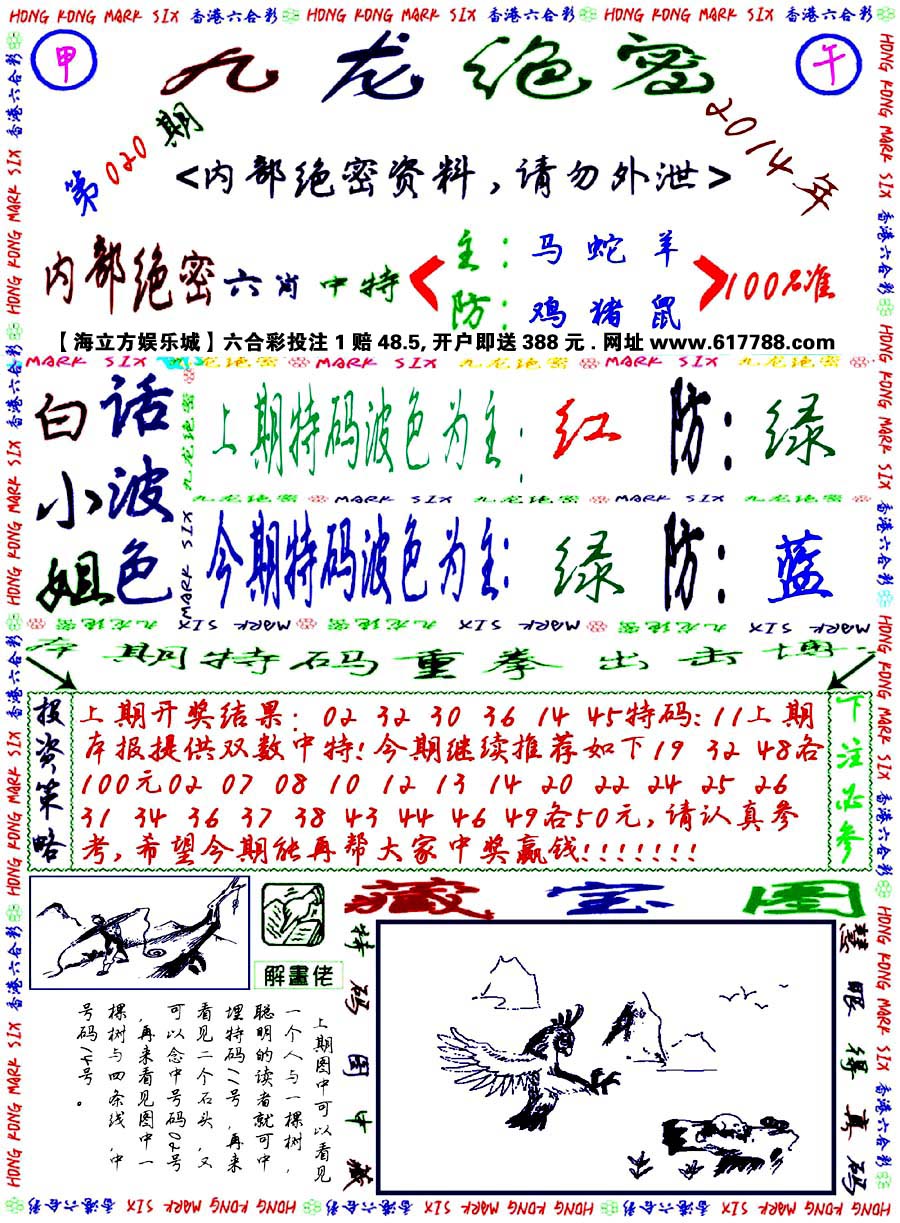 HONG KONG MARK SIX 香港六合彩 HONG KONG MARK SIX 香港六合彩 HONG KONG MARK SIX 香港六合彩
甲
九龙绝密
午
第020期
2014年
<内部绝密资料,请勿外泄>
内部绝密六肖中特
主:马蛇羊
防:鸡猪鼠
100%准
【海立方娱乐城】六合彩投注1赔48.5,开户即送388元.网址www.617788.com
MARK SIX 九龙绝密 MARK SIX 九龙绝密 MARK SIX 九龙绝密
白话
小波
姐色
上期特码波色为主:红 防:绿
九龙绝密 MARK SIX 九龙绝密 MARK SIX 九龙绝密
今期特码波色为主:绿 防:蓝
九龙绝密 MARK SIX 九龙绝密 MARK SIX 九龙绝密 MARK SIX
本期特码重拳出击博
投资策略
上期开奖结果:02 32 30 36 14 45特码:11上期
本报提供双数中特!今期继续推荐如下19 32 48各
100元02 07 08 10 12 13 14 20 22 24 25 26
31 34 36 37 38 43 44 46 49各50元,请认真参
考,希望今期能再帮大家中奖赢钱!!!!!!!
下注必参
藏宝图
解畫佬
特码图中藏
慧眼得真码
上期图中可以看见
一个人与一棵树,
聪明的读者就可中
埋特码11号,再来
看见二个石头,又
可以念中号码02号
,再来看见图中一
棵树与四条线,中
号码14号。
HONG KONG MARK SIX 香港六合彩 HONG KONG MARK SIX 香港六合彩 HONG KONG MARK SIX 香港六合彩